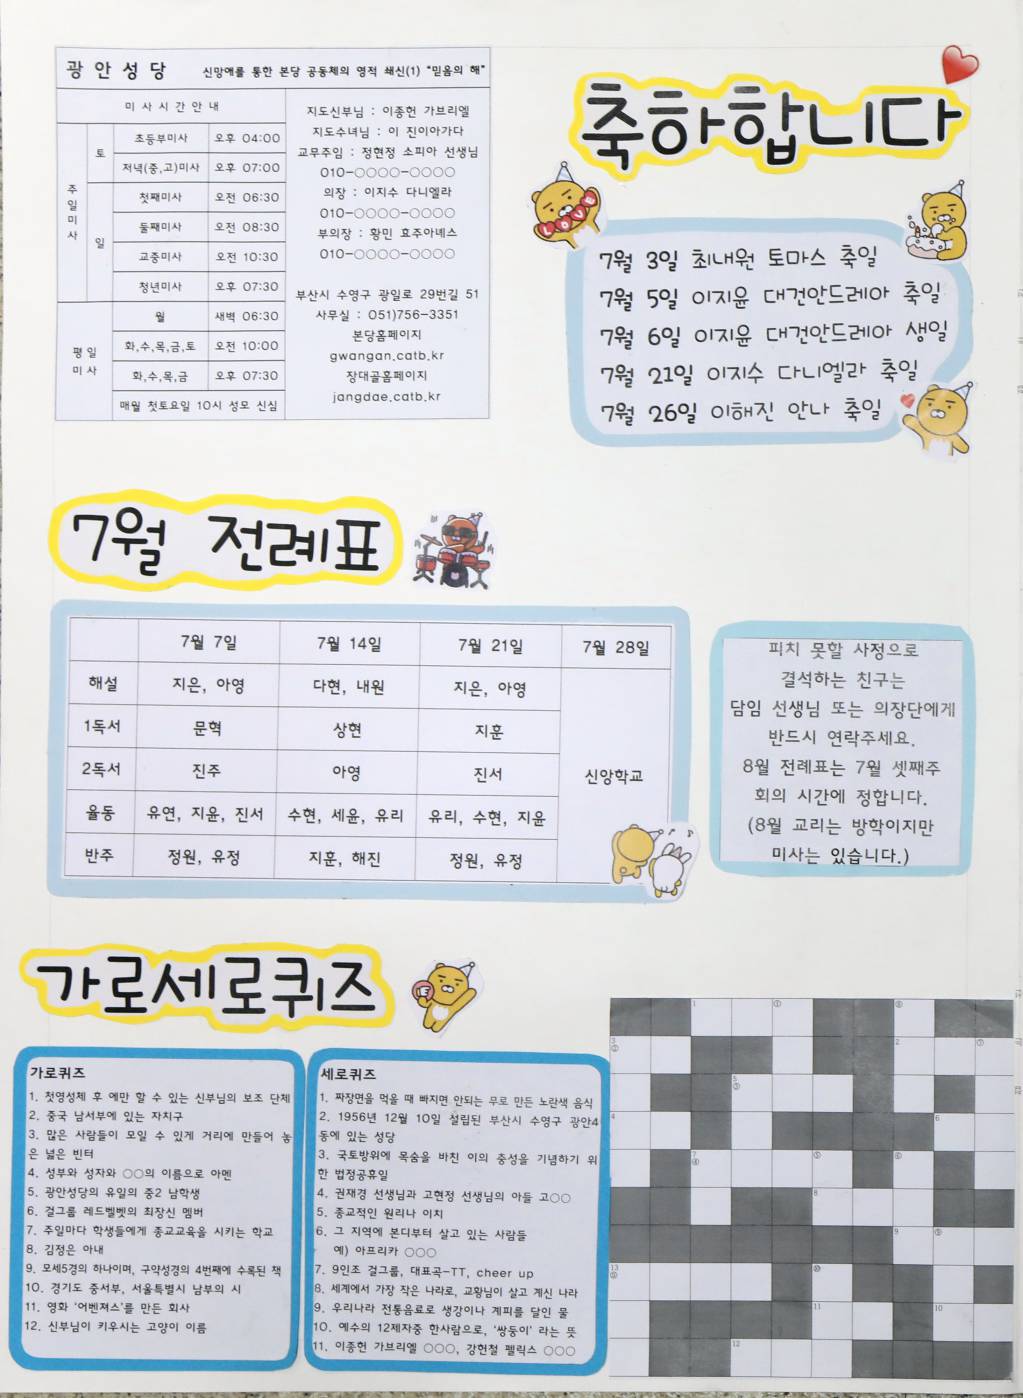 광 안 성 당 신망애를 통한 본당 공동체의 영적 쇄신(1) "믿음의 해"
미 사 시 간 안 내
주일미사
토
초등부미사 오후 04:00
저녁(중,고)미사 오후 07:00
일
첫째미사 오전 06:30
둘째미사 오전 08:30
교중미사 오전 10:30
청년미사 오후 07:30
평일
미사
월 새벽 06:30
화,수,목,금,토 오전 10:00
화,수,목,금 오후 07:30
매월 첫토요일 10시 성모 신심
지도신부님 : 이종헌 가브리엘
지도수녀님 : 이 진이아가다
교무주임 : 정현정 소피아 선생님
010-○○○○-○○○○
의장 : 이지수 다니엘라
010-○○○○-○○○○
부의장 : 황민 효주아녜스
010-○○○○-○○○○
부산시 수영구 광일로 29번길 51
사무실 : 051)756-3351
본당홈페이지
gwangan.catb.kr
장대골홈페이지
jangdae.catb.kr
축하합니다
LOVE
7월 3일 최내원 토마스 축일
7월 5일 이지윤 대건안드레아 축일
7월 6일 이지윤 대건안드레아 생일
7월 21일 이지수 다니엘라 축일
7월 26일 이해진 안나 축일
7월 전례표
7월 7일 7월 14일 7월 21일 7월 28일
해설 지은, 아영 다현, 내원 지은, 아영
1독서 문혁 상현 지훈
2독서 진주 아영 진서 신앙학교
율동 유연, 지윤, 진서 수현, 세윤, 유리 유리, 수현, 지윤
반주 정원, 유정 지훈, 해진 정원, 유정
피치 못할 사정으로
결석하는 친구는
담임 선생님 또는 의장단에게
반드시 연락주세요.
8월 전례표는 7월 셋째주
회의 시간에 정합니다.
(8월 교리는 방학이지만
미사는 있습니다.)
가로세로퀴즈
가로퀴즈
1. 첫영성체 후 에만 할 수 있는 신부님의 보조 단체
2. 중국 남서부에 있는 자치구
3. 많은 사람들이 모일 수 있게 거리에 만들어 놓
은 넓은 빈터
4. 성부와 성자와 ○○의 이름으로 아멘
5. 광안성당의 유일의 중2 남학생
6. 걸그룹 레드벨벳의 최장신 멤버
7. 주일마다 학생들에게 종교교육을 시키는 학교
8. 김정은 아내
9. 모세5경의 하나이며, 구약성경의 4번째에 수록된 책
10. 경기도 중서부, 서울특별시 남부의 시
11. 영화 '어벤져스'를 만든 회사
12. 신부님이 키우시는 고양이 이름
세로퀴즈
1. 짜장면을 먹을 때 빠지면 안되는 무로 만든 노란색 음식
2. 1956년 12월 10일 설립된 부산시 수영구 광안4
동에 있는 성당
3. 국토방위에 목숨을 바친 이의 충성을 기념하기 위
한 법정공휴일
4. 권재경 선생님과 고현정 선생님의 아들 고○○
5. 종교적인 원리나 이치
6. 그 지역에 본디부터 살고 있는 사람들
예) 아프리카 ○○○
7. 9인조 걸그룹, 대표곡-TT, cheer up
8. 세계에서 가장 작은 나라로, 교황님이 살고 계신 나라
9. 우리나라 전통음료로 생강이나 계피를 달인 물
10. 예수의 12제자중 한사람으로, '쌍둥이' 라는 뜻
11. 이종헌 가브리엘 ○○○, 강헌철 펠릭스 ○○○
1 ① ⑧
3 ② 2 ⑦
5 ③
4 6
7 ④ ⑤ 6
8
9 ⑨
13 ⑩
11 10
12